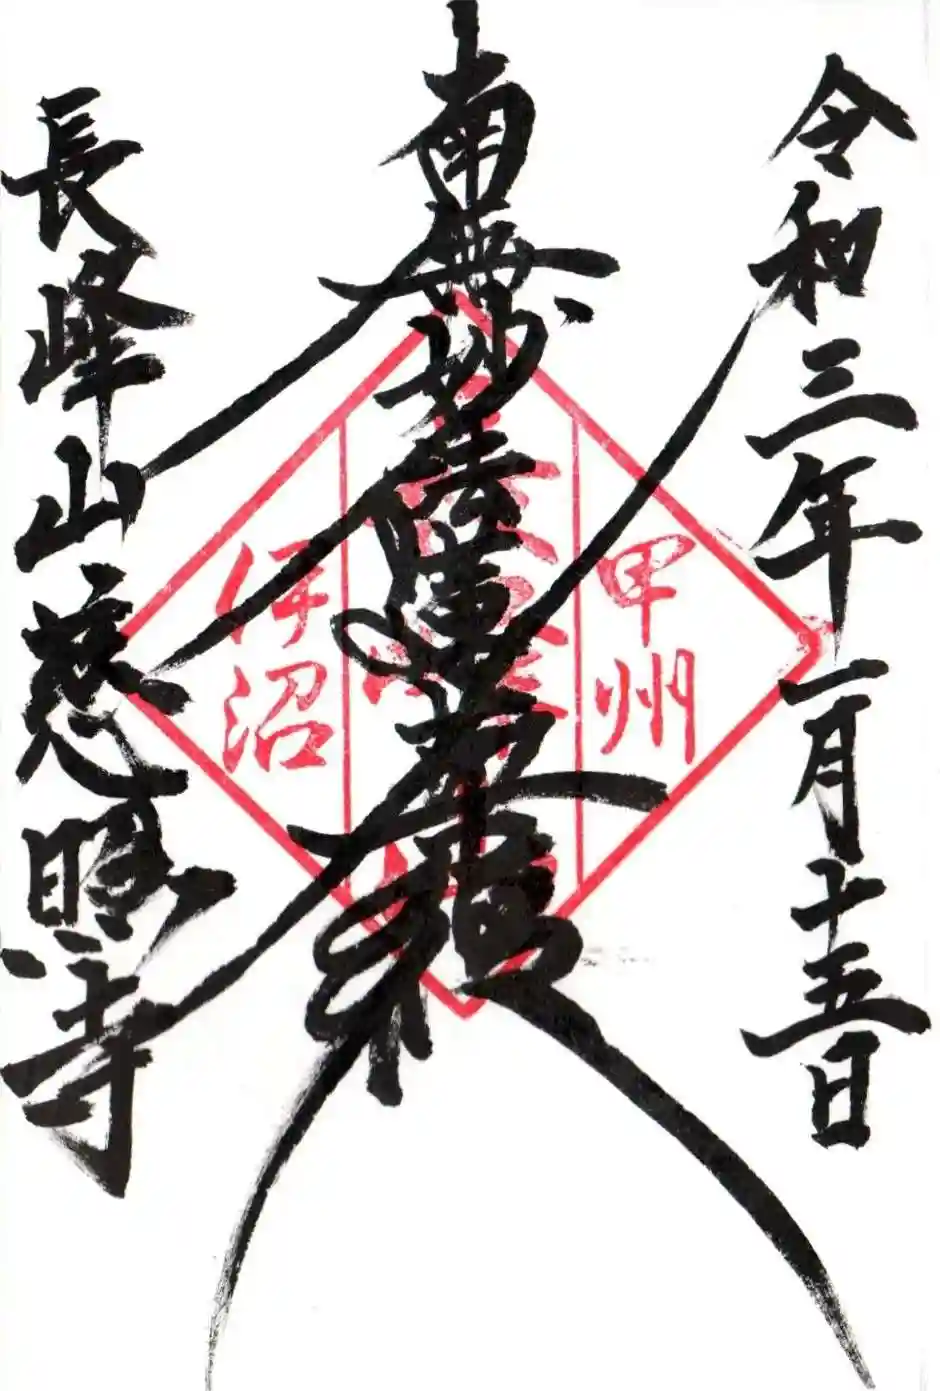 令和三年一月十五日
南無妙法蓮華経
甲州
伊沼
長峰山慈照寺